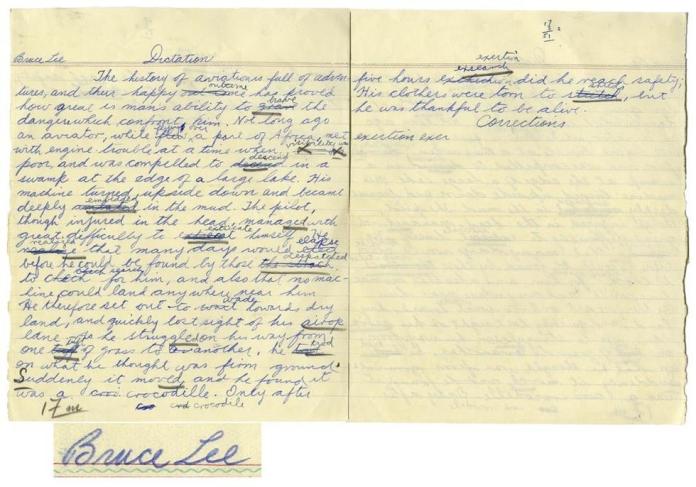 Bruce Lee Dictation
The history of aviation is full of adven-
outcome
tures, and their happy has proved
brave
how great is man's ability to the
dangers which confront him. Not long ago
over
an aviator, while a part of Africa, met
with engine trouble at a time when
descend
poor, and was compelled to in a
swamp at the edge of a large lake. His
machine turned upside down and became
embedded
deeply in the mud. The pilot,
though injured in the head, managed with
extricate
great difficulty to himself. He
realized elapse
that many days would
despatched
before he could be found by those
search
to for him, and also that no mac-
hine could land any where near him
wade
He therefore set out to towards dry
land, and quickly lost sight of his airop
lane. As he struggled on his way from
tuft trod
one of grass to another, he
on what he thought was firm ground.
Suddenly it moved, and he found it
was a crocodille. Only after
17 m crocodile
17
51
exertion
five hours did he reach safety;
His clothers were torn to , but
he was thankful to be alive.
Corrections
exertion exer
Bruce Lee